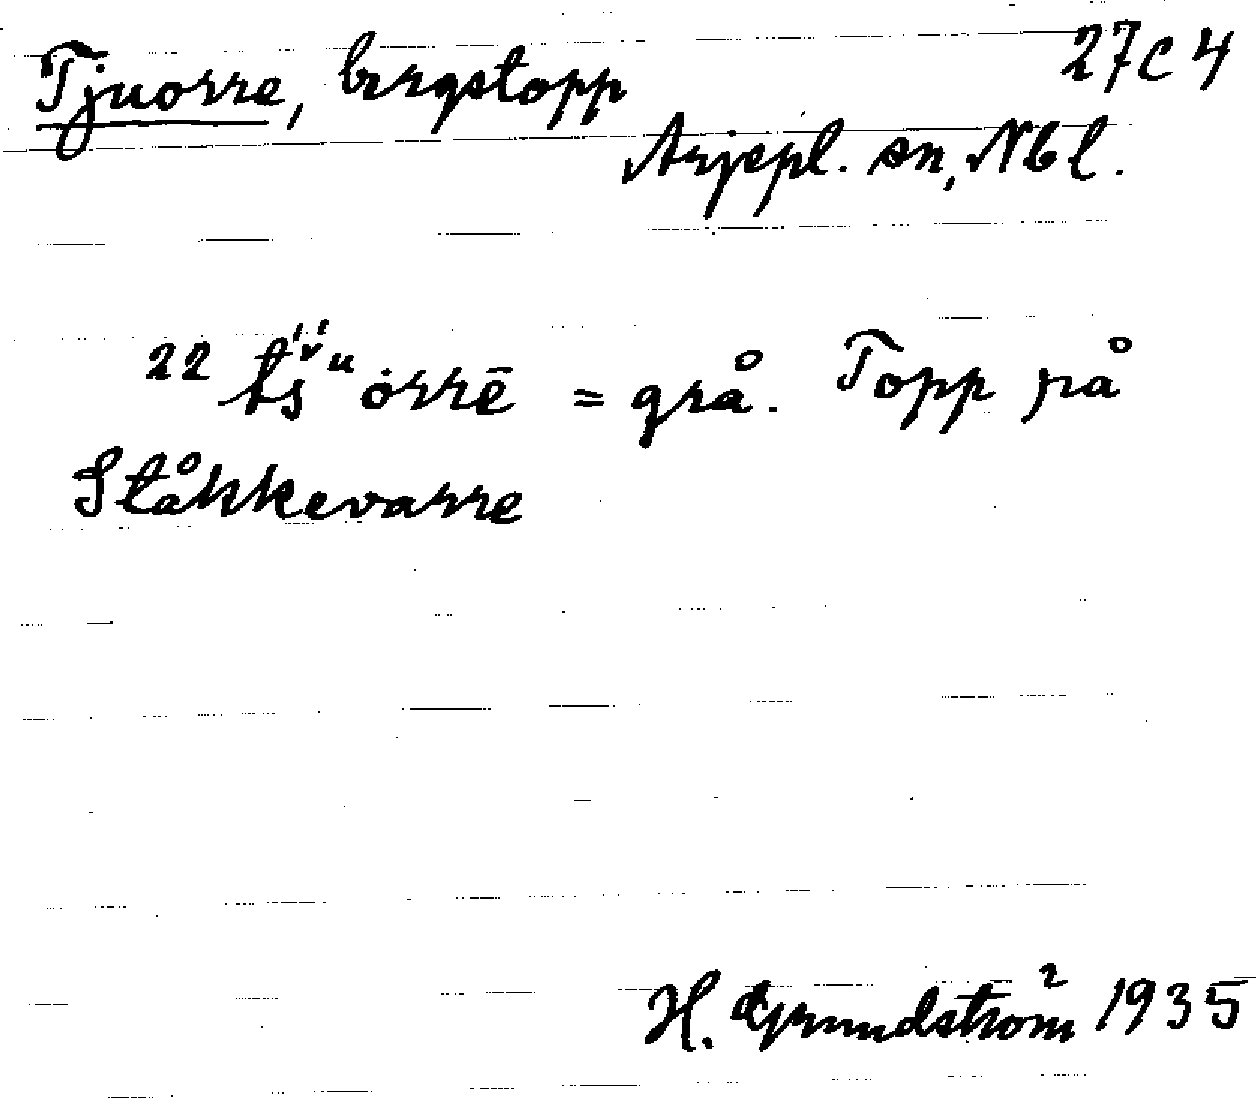 Tjuorre, bergstopp 27C4
Arjepl. sn, Nbl.
22 = grå. Topp på
Ståkkevarre
H. Grundström 1935